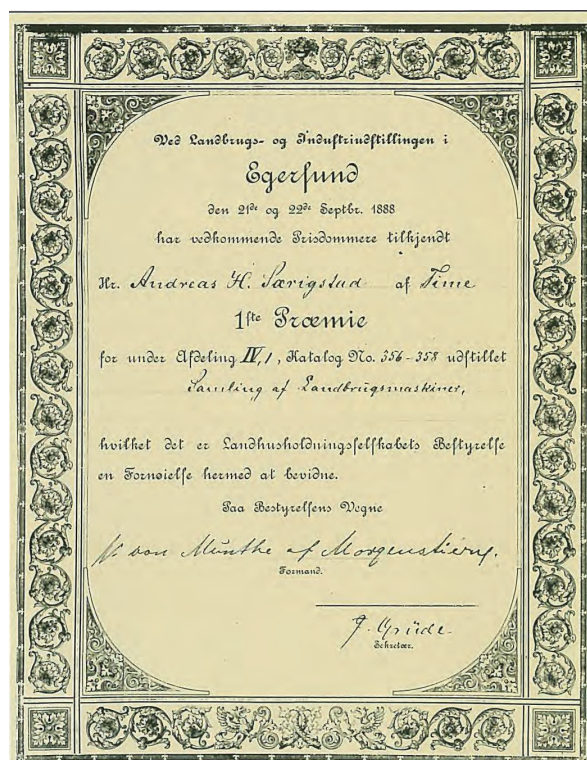 Ved Landbrugs- og Industriudstillingen i
Egersund
den 21de og 22de Septbr. 1888
har vedkommende Prisdommere tilkjendt
Hr. Andreas H. Særigstad af Time
1ste Præmie
for under Afdeling IV,1, Katalog No. 356-358 udstillet
Samling af Landbrugsmaskiner,
hvilket det er Landhusholdningsselskabets Bestyrelse
en Fornøielse hermed at bevidne.
Paa Bestyrelsens Vegne
von Munthe af Morgenstierne.
Formand.
Grude
Sekretær.